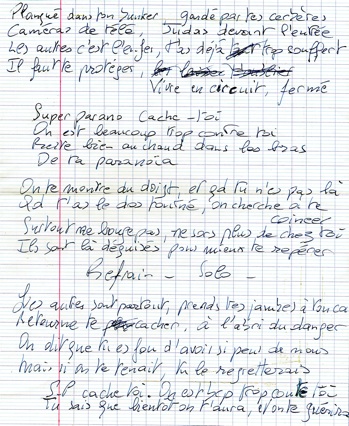 Planque dans ton bunker, gardé par tes cerbères
Caméras de télé, Judas devant l'entrée
Les autres c'est l'enfer, t'as déjà trop souffert
Il faut te protéger,
Vivre en circuit, fermé
Super parano Cache-toi
On est beaucoup trop contre toi
Reste bien au chaud dans les bras
De ta paranoia
On te montre du doigt, et qd tu n'es pas là
Qd t'as le dos tourné, on cherche à te
coincer
Surtout ne bouge pas, ne sors plus de chez toi
Ils sont là déguisés pour mieux te repérer
Refrain - Solo -
Les autres sont partout, prends tes jambes à ton cou
Retourne te cacher, à l'abri du danger
On dit que tu es fou d'avoir si peur de nous
Mais si on te tenait, tu le regretterais
S.P cache toi. On est bcp trop contre toi
Tu sais que bientôt on t'aura, et on te guérira